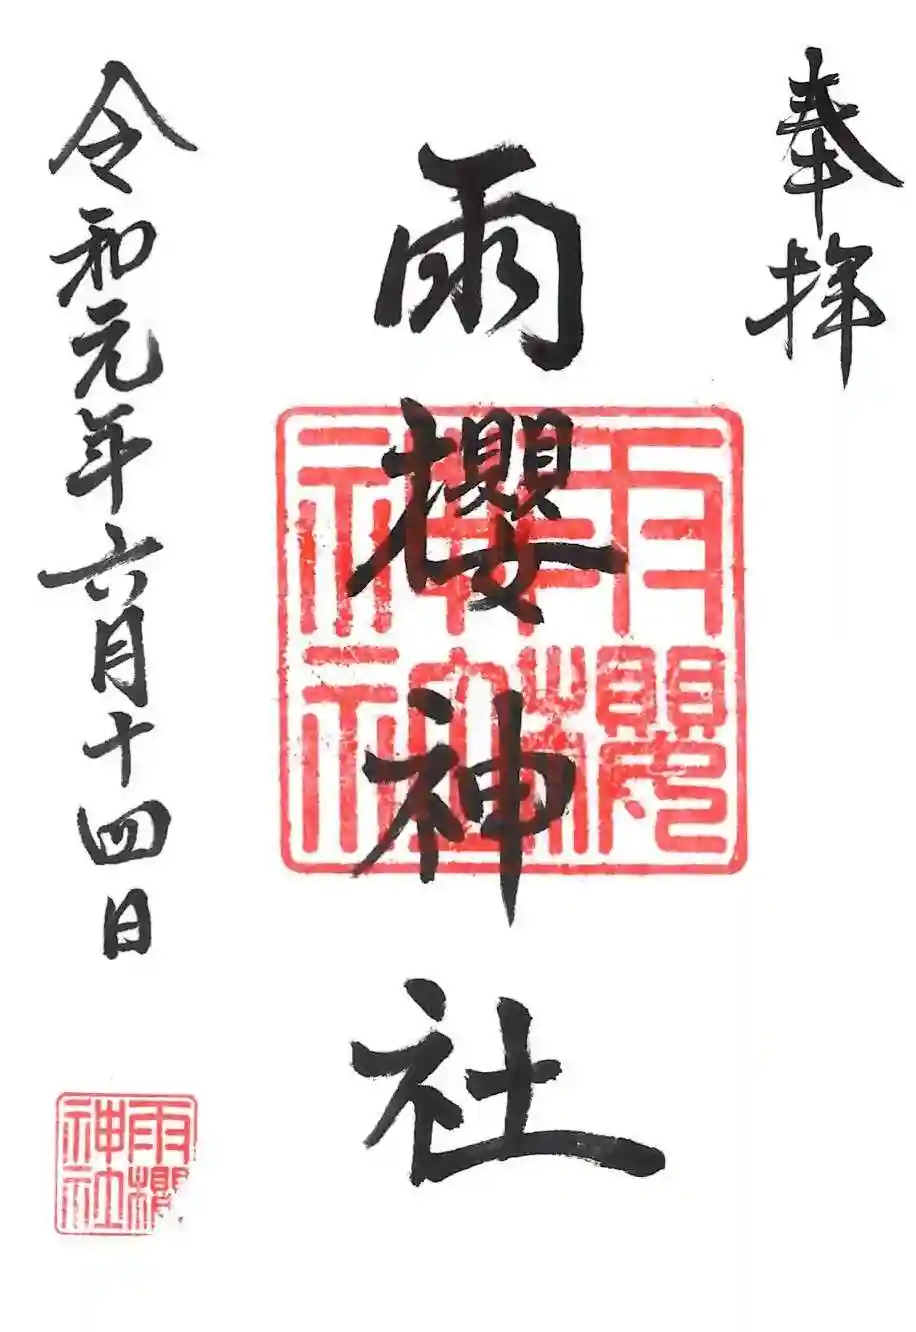 奉拝
雨櫻神社
雨櫻神社
令和元年六月十四日
雨櫻神社